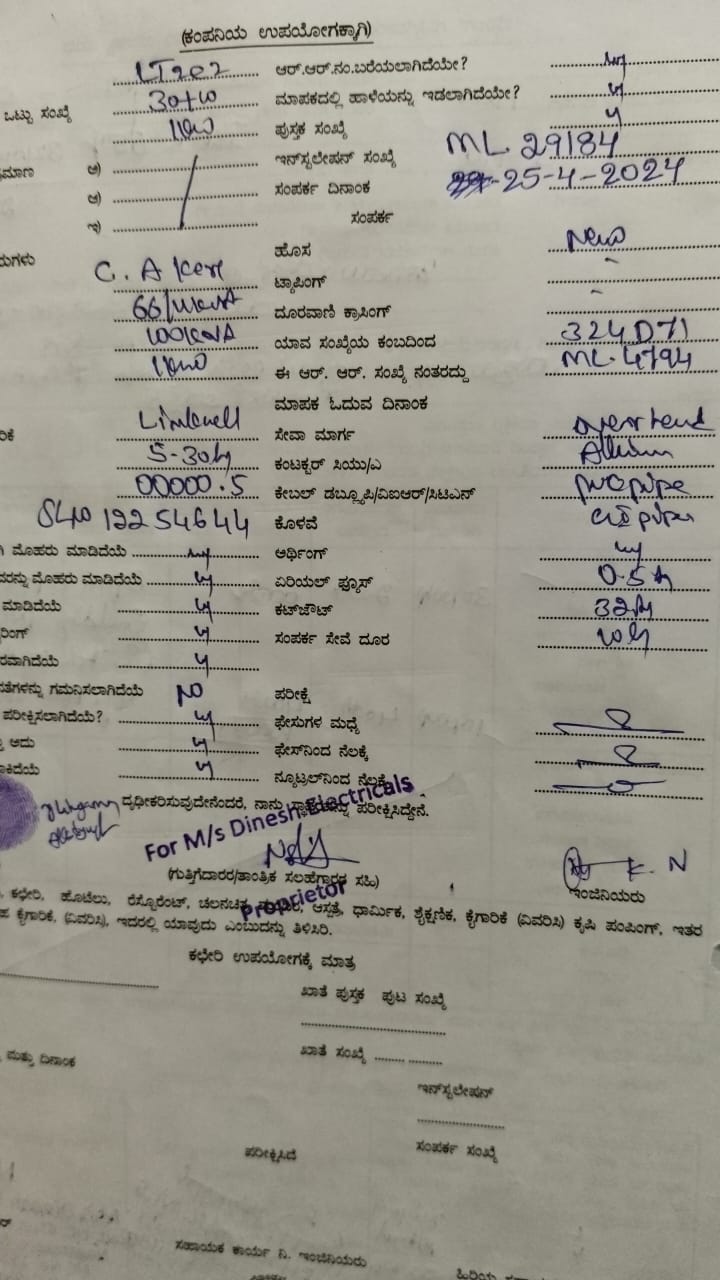 (ಕಂಪನಿಯ ಉಪಯೋಗಕ್ಕಾಗಿ)
LT202 ಆರ್.ಆರ್.ನಂ.ಬರೆಯಲಾಗಿದೆಯೇ?
ಒಟ್ಟು ಸಂಖ್ಯೆ 30+10 ಮಾಪಕದಲ್ಲಿ ಹಾಳೆಯನ್ನು ಇಡಲಾಗಿದೆಯೇ? y
New ಪುಸ್ತಕ ಸಂಖ್ಯೆ y
ಅ) ಇನ್‌ಸ್ಟಲೇಷನ್ ಸಂಖ್ಯೆ ML 29184
ಆ) ಸಂಪರ್ಕ ದಿನಾಂಕ 25-4-2024
ಇ) ಸಂಪರ್ಕ
ಹೊಸ New
C. A ಟ್ಯಾಪಿಂಗ್ -
66/ ದೂರವಾಣಿ ಕ್ರಾಸಿಂಗ್ -
100 ಯಾವ ಸಂಖ್ಯೆಯ ಕಂಬದಿಂದ 324D71
New ಈ ಆರ್. ಆರ್. ಸಂಖ್ಯೆ ನಂತರದ್ದು ML.4794
ಮಾಪಕ ಓದುವ ದಿನಾಂಕ
ಸೇವಾ ಮಾರ್ಗ overhead
5-30 ಕಂಟಕ್ಟರ್ ಸಿಯು/ಎ
00000.5 ಕೇಬಲ್ ಡಬ್ಲ್ಯೂಪಿ/ವಿಐಆರ್/ಸಿಟಿಎನ್ pvc pipe
SL No 12254644 ಕೊಳವೆ pipe
ಮೊಹರು ಮಾಡಿದೆಯೆ ಅರ್ಥಿಂಗ್ y
ಮೊಹರು ಮಾಡಿದೆಯೆ y ಏರಿಯಲ್ ಫ್ಯೂಸ್ 0.5
ಮಾಡಿದೆಯೆ y ಕಟ್‌ಔಟ್ 32A
y ಸಂಪರ್ಕ ಸೇವೆ ದೂರ 10
y
ಗಮನಿಸಲಾಗಿದೆಯೆ NO ಪರೀಕ್ಷೆ
ಪರೀಕ್ಷಿಸಲಾಗಿದೆಯೆ? y ಫೇಸುಗಳ ಮಧ್ಯೆ
ಅದು y ಫೇಸ್‌ನಿಂದ ನೆಲಕ್ಕೆ
y ನ್ಯೂಟ್ರಲ್‌ನಿಂದ ನೆಲಕ್ಕೆ
ದೃಢೀಕರಿಸುವುದೇನೆಂದರೆ, ನಾನು ಪರೀಕ್ಷಿಸಿದ್ದೇನೆ.
For M/s Dinesh Electricals
K. N
(ಗುತ್ತಿಗೆದಾರರ/ತಾಂತ್ರಿಕ ಸಲಹೆಗಾರರ ಸಹಿ) ಇಂಜಿನಿಯರು
Proprietor
ಕಛೇರಿ, ಹೊಟೆಲು, ರೆಸ್ಟೋರೆಂಟ್, ಚಲನಚಿತ್ರ ಆಸ್ಪತ್ರೆ, ಧಾರ್ಮಿಕ, ಶೈಕ್ಷಣಿಕ, ಕೈಗಾರಿಕೆ (ವಿವರಿಸಿ) ಕೃಷಿ ಪಂಪಿಂಗ್, ಇತರ
ಕೈಗಾರಿಕೆ, (ವಿವರಿಸಿ), ಇದರಲ್ಲಿ ಯಾವುದು ಎಂಬುದನ್ನು ತಿಳಿಸಿರಿ.
ಕಛೇರಿ ಉಪಯೋಗಕ್ಕೆ ಮಾತ್ರ
ಖಾತೆ ಪುಸ್ತಕ ಪುಟ ಸಂಖ್ಯೆ
ಮತ್ತು ದಿನಾಂಕ ಖಾತೆ ಸಂಖ್ಯೆ
ಇನ್‌ಸ್ಟಲೇಷನ್
ಪರೀಕ್ಷಿಸಿದೆ ಸಂಪರ್ಕ ಸಂಖ್ಯೆ
ಸಹಾಯಕ ಕಾರ್ಯ ನಿ. ಇಂಜಿನಿಯರು